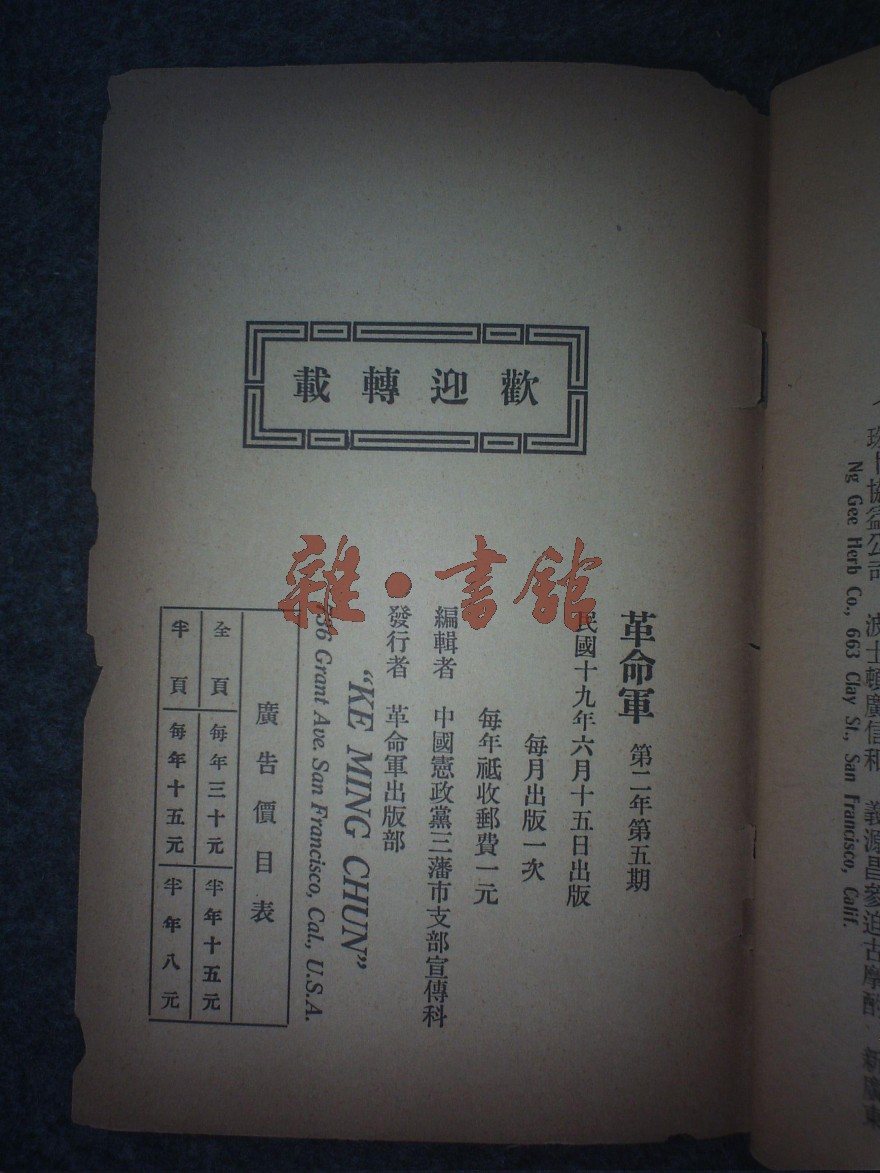 歡迎轉載
革命軍 第二年第五期
民國十九年六月十五日出版
每月出版一次
每年祗收郵費一元
編輯者 中國憲政黨三藩市支部宣傳科
發行者 革命軍出版部
"KE MING CHUN"
736 Grant Ave. San Francisco, Cal., U.S.A.
廣告價目表
全頁 每年三十元 半年十五元
半頁 每年十五元 半年八元
雜•書館
協益公司 波士頓廣信和 義源昌 古摩
Ng Gee Herb Co., 663 Clay St., San Francisco, Calif.